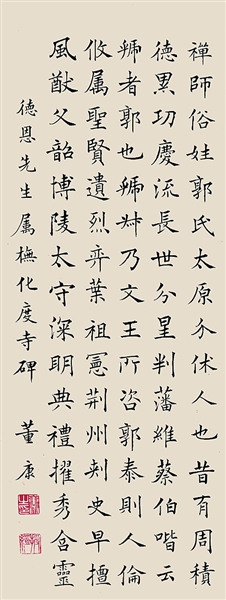 禪師俗姓郭氏太原介休人也昔有周積
德累功慶流長世分星判藩維蔡伯喈云
虢者郭也虢叔乃文王所咨郭泰則人倫
攸属聖賢遺烈弈葉祖憲荊州刺史早擅
風猷父韶博陵太守深明典禮擢秀含靈
德恩先生属橅化度寺碑 董康